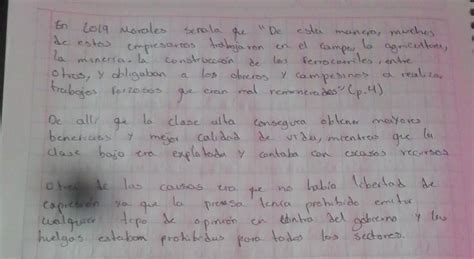 En 2019 Morales señala que "De esta manera, muchos
de estos empresarios trabajaron en el campo, la agricultura,
la minería, la construcción de los ferrocarriles, entre
otros, y obligaban a los obreros y campesinos a realizar
trabajos forzosos que eran mal remunerados" (p.4)
De allí que la clase alta conseguía obtener mayores
beneficios y mejor calidad de vida, mientras que la
clase baja era explotada y contaba con escasos recursos
Otra de las causas era que no había libertad de
expresión ya que la prensa tenía prohibido emitir
cualquier tipo de opinión en contra del gobierno y las
huelgas estaban prohibidas para todos los sectores.